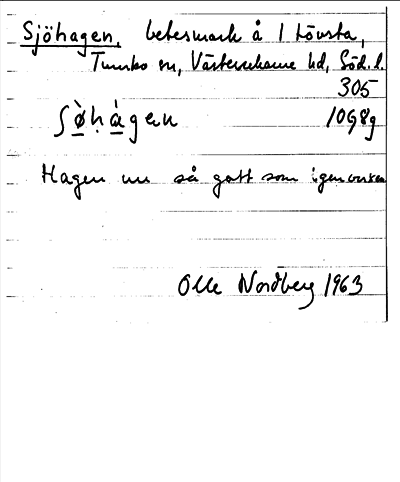 Sjöhagen, betesmark å 1 Lövsta,
Tumbo sn, Västerrekarne hd, Söd. l.
305
ʃö̀ḥàgen 10G8g
Hagen nu så gott som igenvuxen
Olle Nordberg 1963